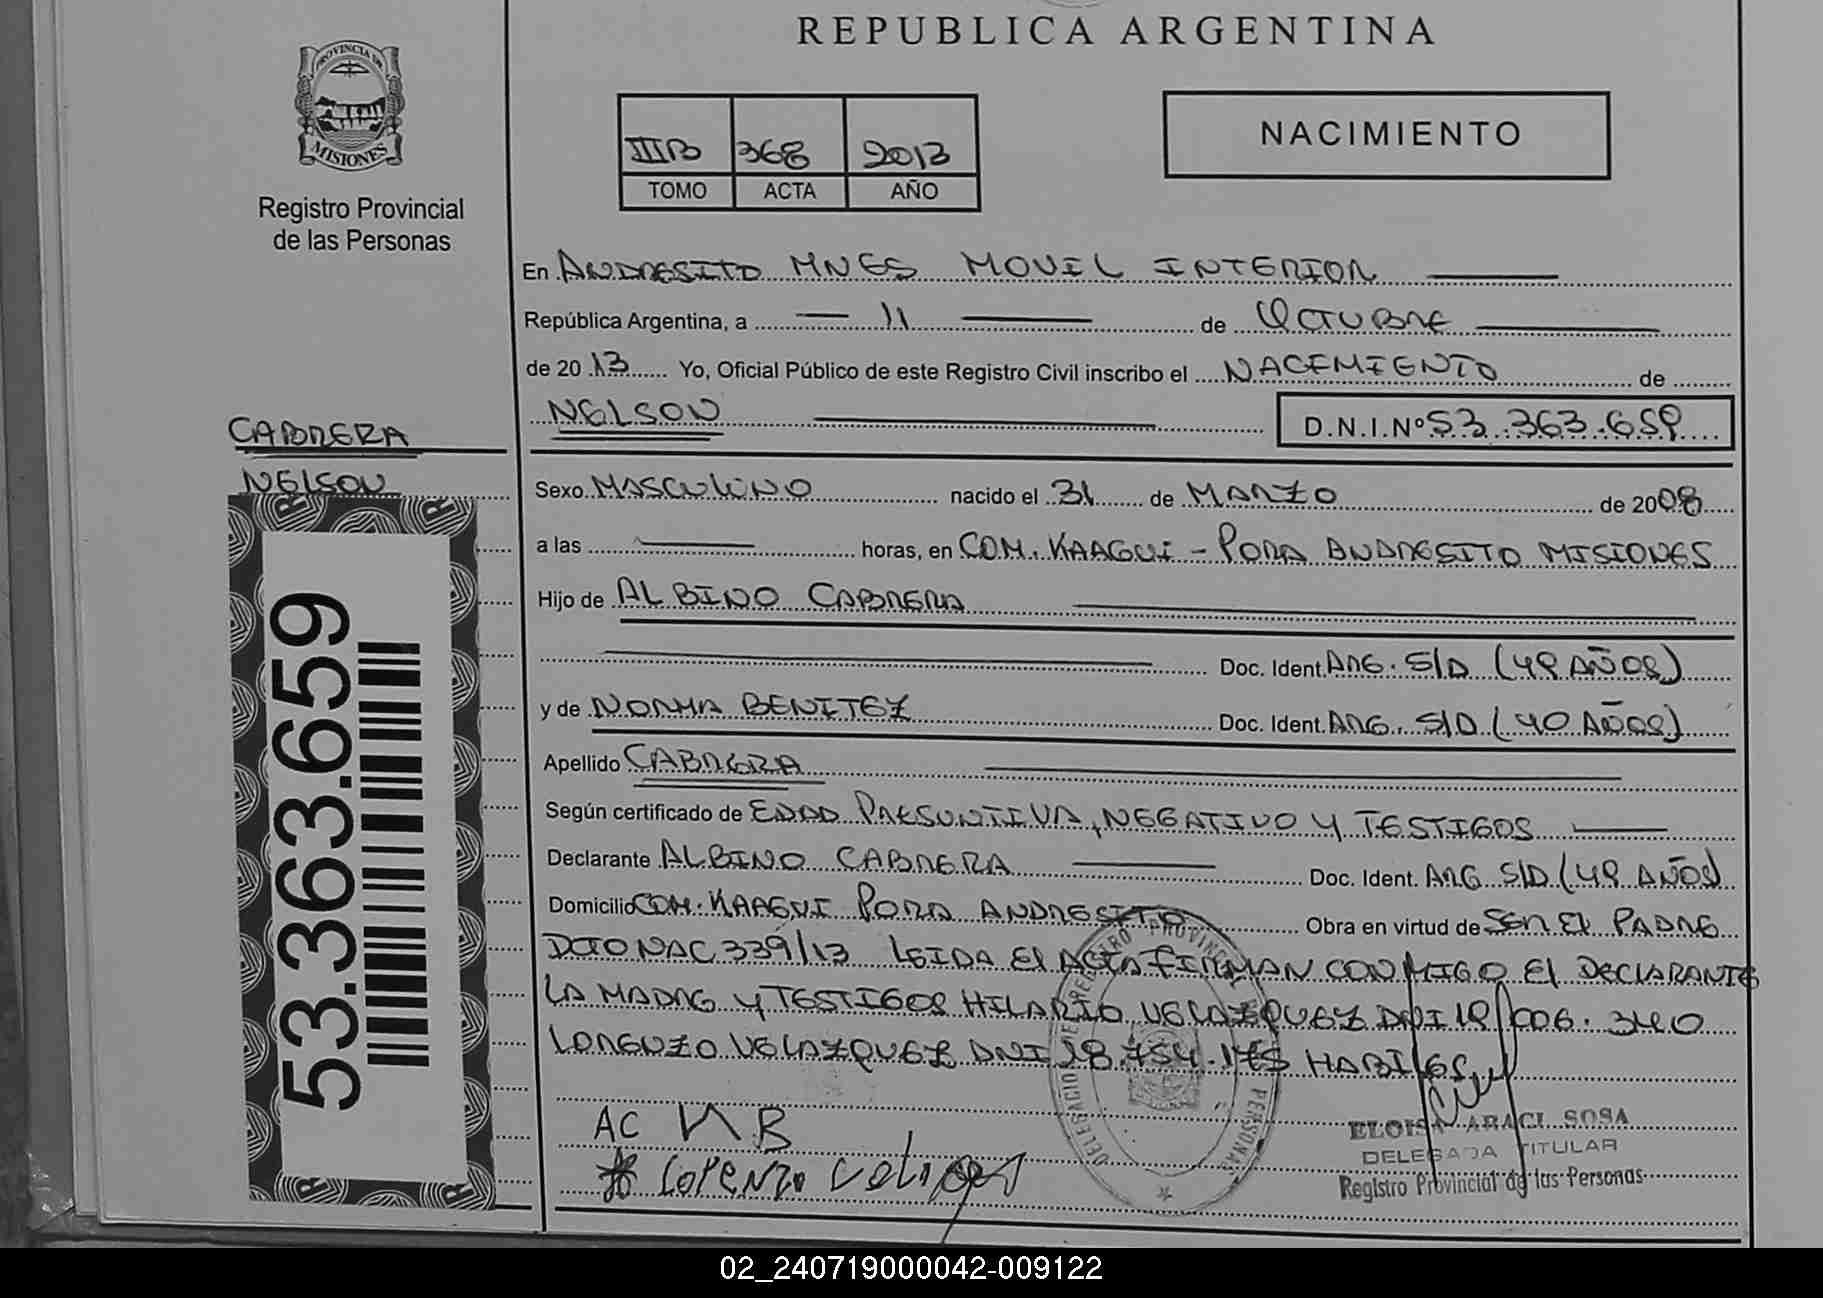 REPUBLICA ARGENTINA
PROVINCIA DE
MISIONES
Registro Provincial
de las Personas
IIIB 368 2013
TOMO ACTA AÑO
NACIMIENTO
En ANDRESITO MNES MOVIL INTERIOR
República Argentina, a 11 de OCTUBRE
de 2013 Yo, Oficial Público de este Registro Civil inscribo el NACIMIENTO de
NELSON D.N.I.Nº 53.363.659
CABRERA
NELSON
53.363.659
Sexo MASCULINO nacido el 31 de MARZO de 2008
a las horas, en COM. KAAGUI - PORA ANDRESITO MISIONES
Hijo de ALBINO CABRERA
Doc. Ident. ARG. S/D (49 AÑOS)
y de NORMA BENITEZ Doc. Ident. ARG. S/D (40 AÑOS)
Apellido CABRERA
Según certificado de EDAD PRESUNTIVA, NEGATIVO Y TESTIGOS
Declarante ALBINO CABRERA Doc. Ident. ARG S/D (49 AÑOS)
Domicilio COM. KAAGUI PORA ANDRESITO Obra en virtud de SER EL PADRE
DCTO NAC 339/13 LEIDA EL ACTA FIRMAN CONMIGO EL DECLARANTE
LA MADRE Y TESTIGOS HILARIO VELAZQUEZ DNI 19.006.340
LORENZO VELAZQUEZ DNI 18.754.175 HABILES
AC NB
LORENZO
DELEGACION REGISTRO PROVINCIAL DE PERSONAS
ELOISA ARACI SOSA
DELEGADA TITULAR
Registro Provincial de las Personas
02_240719000042-009122